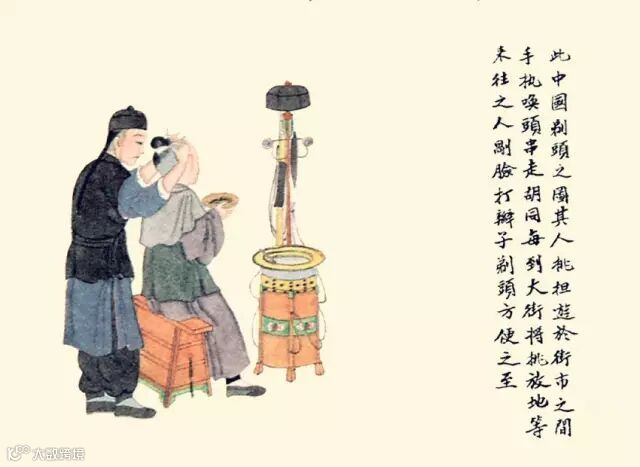 此中國剃頭之圖其人挑担遊於街市之間
手执喚頭串走胡同每到大街将挑放地等
来往之人剮臉打辮子剃頭方便之至
大数跨境